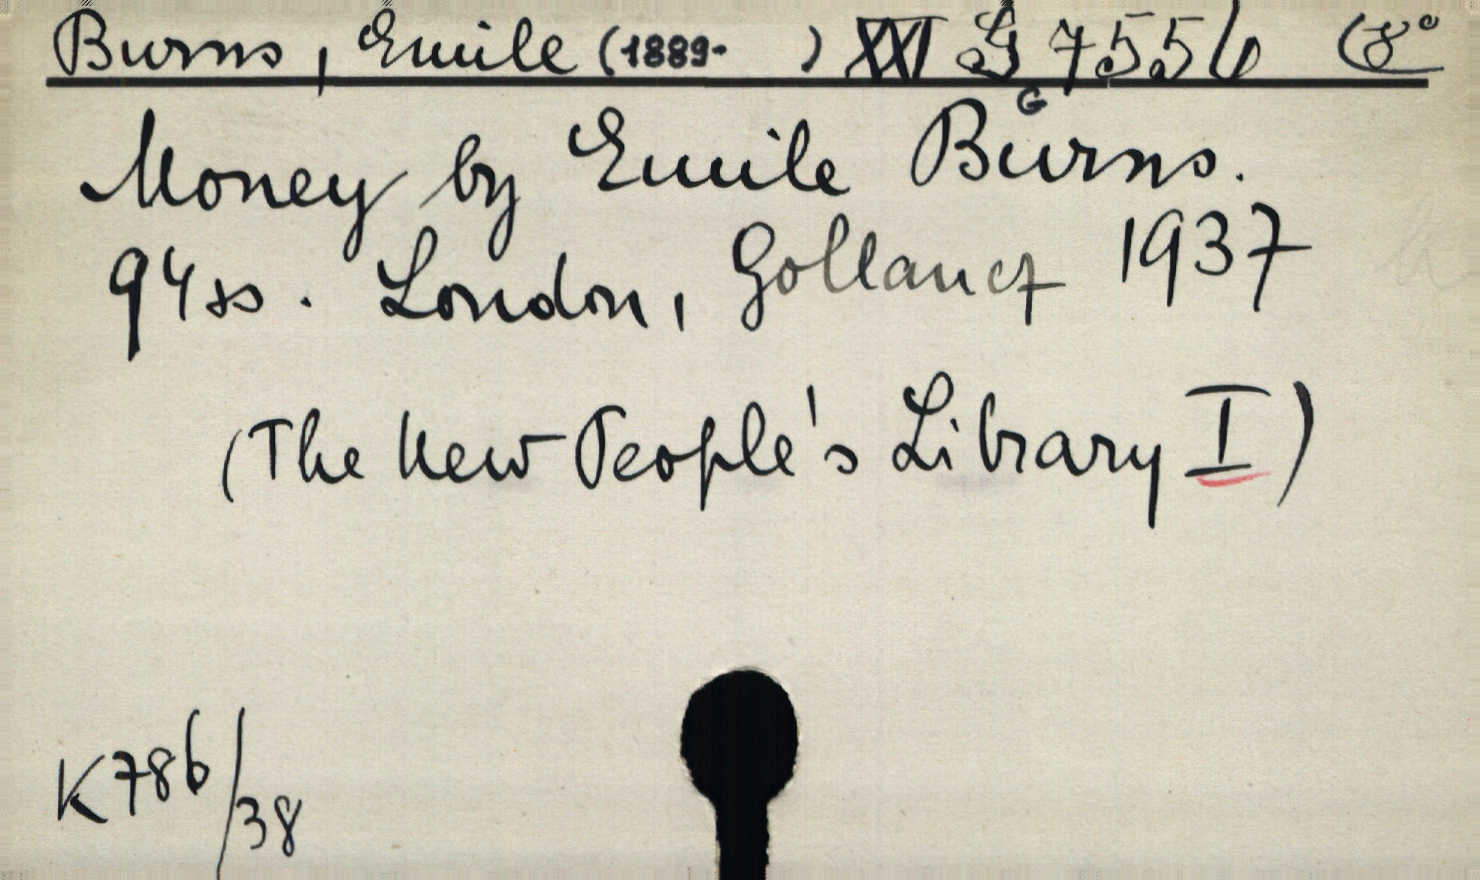 Burns, Emile (1889- ) XXI G 7556 (8°
G
Money by Emile Burns.
94 ss. London, Gollancz 1937
(The New People's Library I)
K 786/38